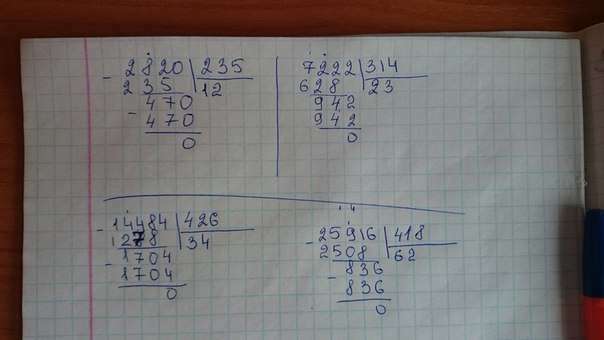 - 2820 | 235
235 | 12
- 470
470
0
7222 | 314
628 | 23
942
942
0
- 14484 | 426
1278 | 34
- 1704
1704
0
- 25916 | 418
2508 | 62
- 836
836
0